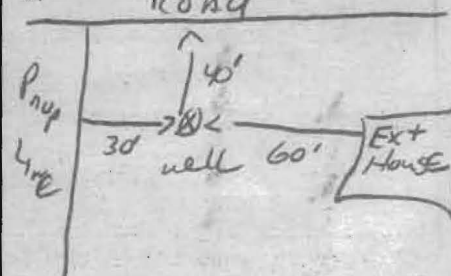 Road
40'
Prop
Line
30'
well
60'
Ext
House